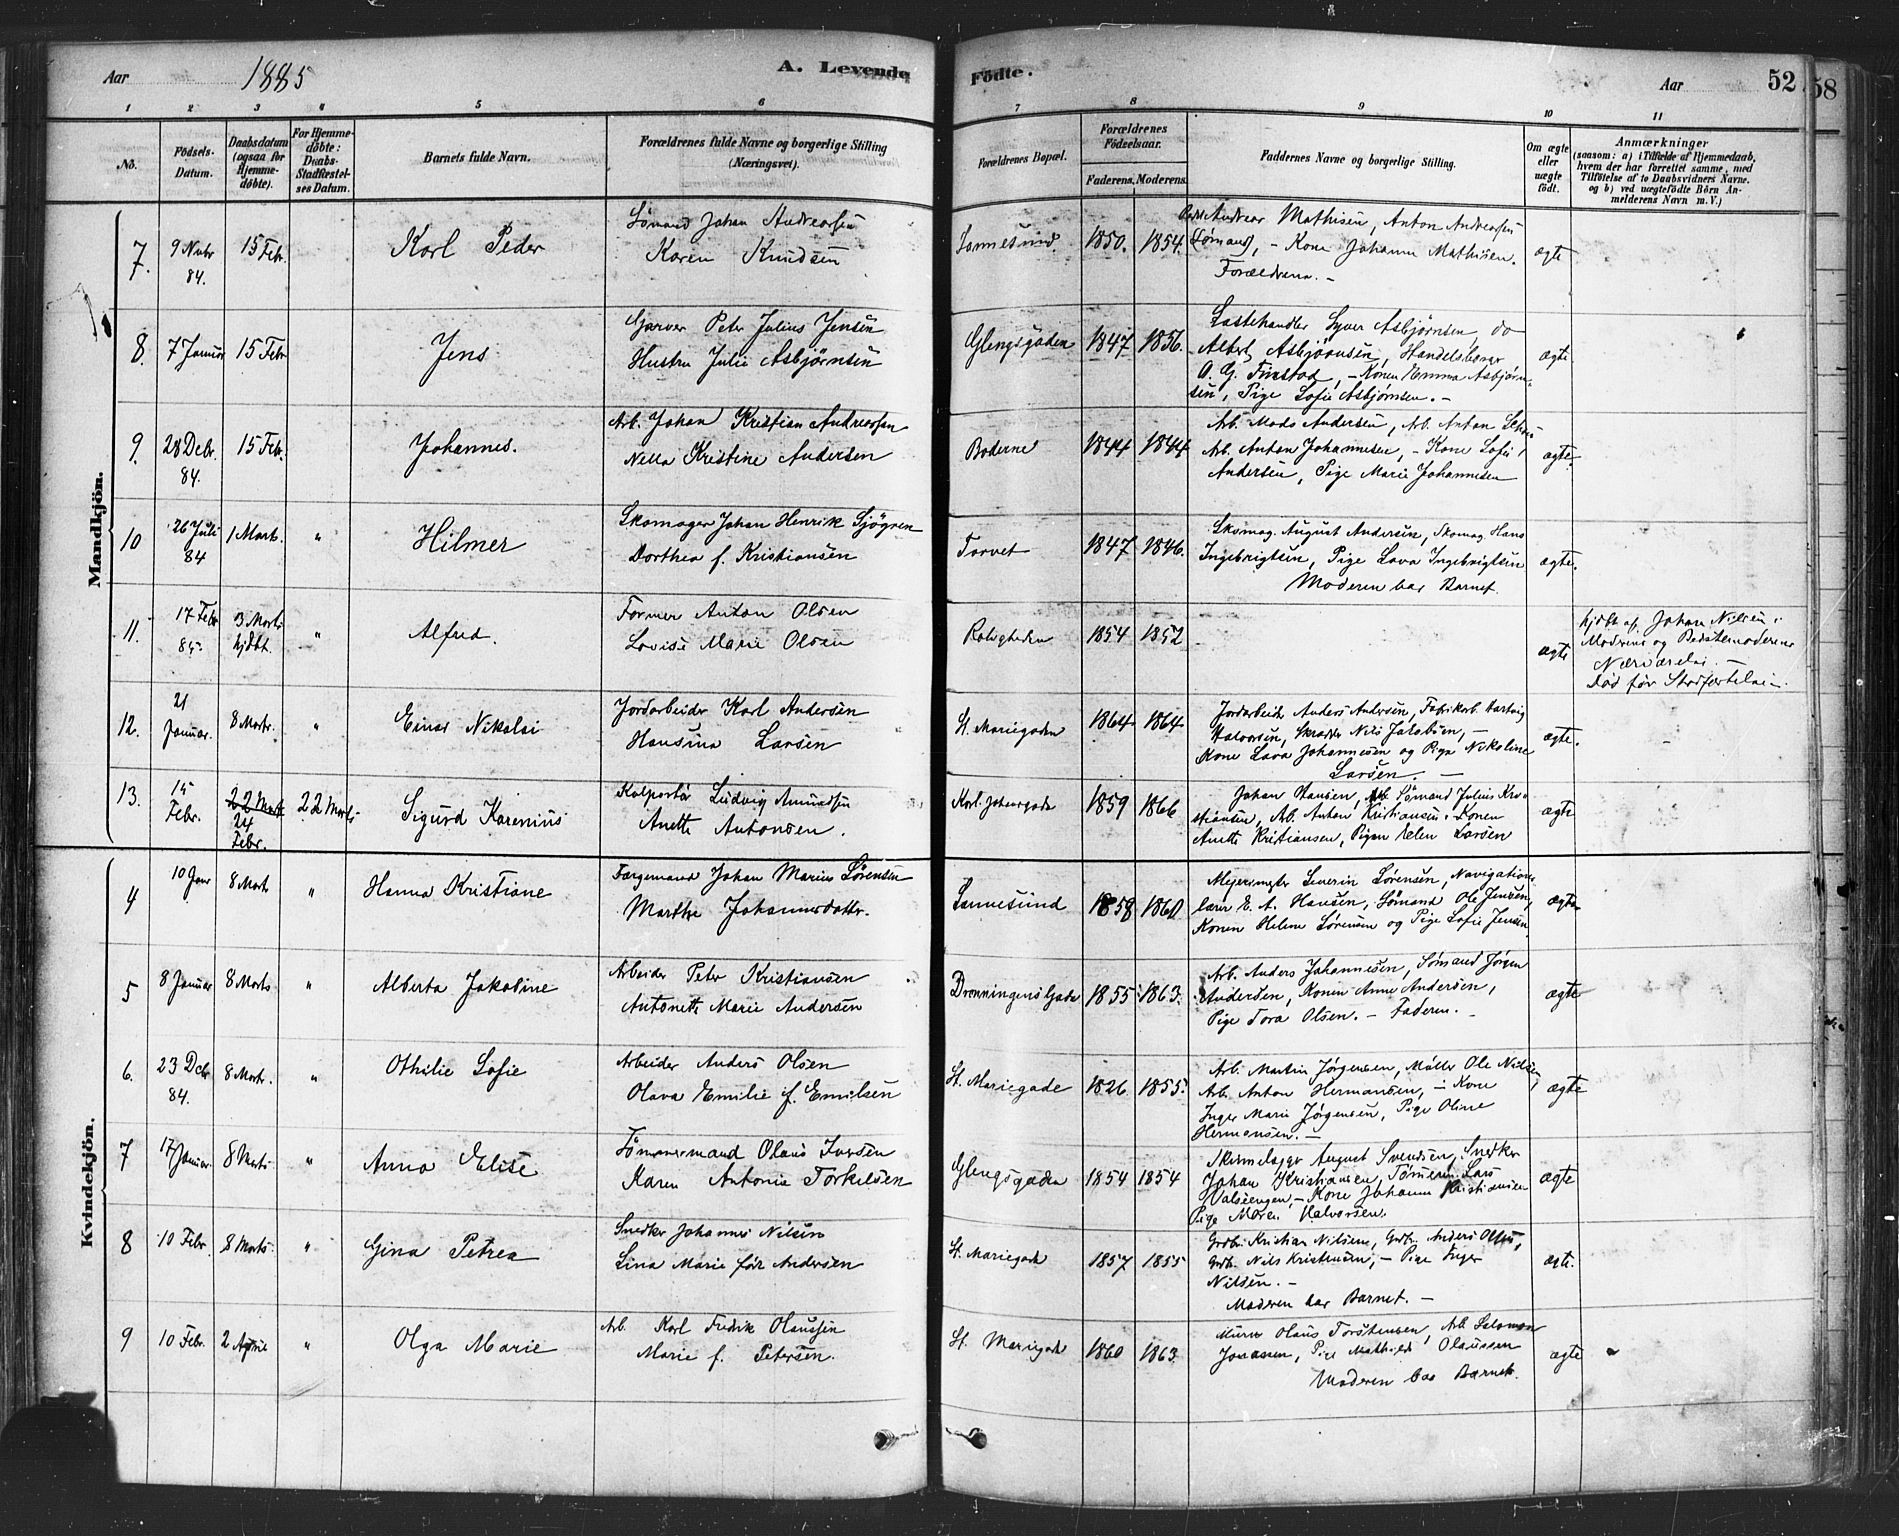 Aar 1885 A. Levende Fødte. Aar 52 58
1 2 3 " 5 6 7 8 9 10 11
No.
Fødsels-Datum.
Daabsdatum (ogsaa for Hjemme-døbte).
For Hjemme-døbte: Daabs-Stadfæstel-ses Datum.
Barnets fulde Navn.
Forældrenes fulde Navne og borgerlige Stilling (Næringsvei).
Forældrenes Bopæl.
Forældrenes Fødselsaar.
Faderens. Moderens.
Faddernes Navne og borgerlige Stilling.
Om ægte eller uægte født.
Anmærkninger
(saasom: a) i Tilfælde af Hjemmedaab,
hvem der har forrettet samme, med
Tilføielse af to Daabsvidners Navne.
og b) ved uægtefødte Børn An-
melderens Navn m. V.)
Mandkjön.
7. 9 Nvbr 84. 15 Febr. Karl Peder
Sømand Johan Andreassen
Karen Knudsen
Sannesund 1850. 1854.
Andreas Mathisen, Anton Andreasen
Sømand, – Kone Johanne Mathisen.
Forældrene. –
ægte
8. 7 Januar 15 Febr Jens
Garver Peter Julius Jensen
Hustru Julie Asbjørnsen
Glengsgaden 1847 1856.
Syver Asbjørnsen do
Albert Asbjørnsen, Handelsborger
O. G. Finstad, – Konen Emma Asbjørn-
sen, Pige Sofie Asbjørnsen. –
ægte
9. 28 Debr. 84. 15 Febr. Johannes.
Arb. Johan Kristian Andreassen
Nella Kristine Andersen
Boderne 1844 1844
Arb. Mads Andersen, Arb. Anton
Arb. Anton Johannesen, – Kone Sofie
Andersen, Pige Marie Johannesen
ægte.
10 26 Juli 84 1 Marts. " Hilmer
Skomager Johan Henrik Sjögren
Dorthea f. Kristiansen
Torvet 1847 1846.
Skomag. August Andersen, Skomag. Hans
Ingebrigtsen, Pige Lava Ingebrigtsen
Moderen bar Barnet.
ægte.
11. 17 Febr 85 3 Marts hjdbt. " Alfred.
Former Anton Olsen
Lovise Marie Olsen
Roligheden 1854 1852
ægte
hjdbt af Johan Nilsen i
Moderens og Bedstemoderens
Nærværelse. –
Død før Stadfæstelsen.
12. 21 Januar. 8 Marts. " Einar Nikolai
Jordarbeider Karl Andersen
Hansine Larsen
St. Mariegaden 1864 1864
Jordarbeider Anders Andersen, Fabrikarb. Hartvig
Halvorsen, Skrædder Nils Jakobsen, –
Kone Lava Johannesen og Pige Nikoline
Larsen. –
ægte.
13. 15 Febr. 22 Marts 24 Febr. 22 Marts Sigurd Karenius
Kolportør Ludvig Amundsen
Anette Antonsen.
Karl Johansgade 1859 1866
Johan Hansen, Arb. Sømand Julius Kri-
stiansen, Arb. Anton Kristiansen, Konen
Anette Kristiansen, Pigen Elen Larsen
ægte
Kvindekjön.
4 10 Janr 8 Marts " Hanna Kristiane
Færgemand Johan Marius Sørensen
Marthe Johannesdatter.
Sannesund 1858 1860
Severin Sørensen, Navigations
lærer E. A. Hansen, Sømand Ole Jensen,
Konen Helene Sørensen og Pige Sofie Jensen.
ægte
5 8 Januar 8 Marts " Alberta Jakobine
Arbeider Peter Kristiansen
Antonette Marie Andersen
Dronningens Gade 1855 1863.
Arb. Anders Johannesen, Sømand Jørgen
Andersen, Konen Anne Andersen,
Pige Tora Olsen. – Faderen. –
ægte
6. 23 Debr 84. 8 Marts. " Othilie Sofie
Arbeider Anders Olsen
Olava Emilie f. Emilsen
St. Mariegade 1826 1855.
Arb. Martin Jørgensen, Møller Ole Nilsen,
Arb. Anton Hermansen, – Kone
Inger Marie Jørgensen, Pige Oline
Hermansen. –
ægte
7 17 Januar. 8 Marts " Anna Elise
Tømmermand Olaus Iversen
Karen Antonie Torkelsen
Glengsgaden 1854 1854
August Svendsen, Snedker
Johan Kristiansen, Tømmerm. Lars
Valsengen – Kone Johanne Kristiansen
Pige Maren Halvorsen.
ægte
8 10 Febr 8 Marts " Gina Petrea
Snedker Johannes Nilsen
Lina Marie før Andersen
St. Mariegade 1857 1855
Grdbr. Kristian Nilsen, Grdb. Anders Olsen,
Grdb. Nils Kristensen, – Pige Inger
Nilsen. –
Moderen bar Barnet. –
ægte.
9 10 Febr. 2 April " Olga Marie
Arb. Karl Fredrik Olaussen
Marie f. Petersen.
St. Mariegade 1860 1863
Murer Olaus Torstensen, Arb Salomon
Jonassen, Pige Mathilde Olaussen
Moderen bar Barnet.
ægte